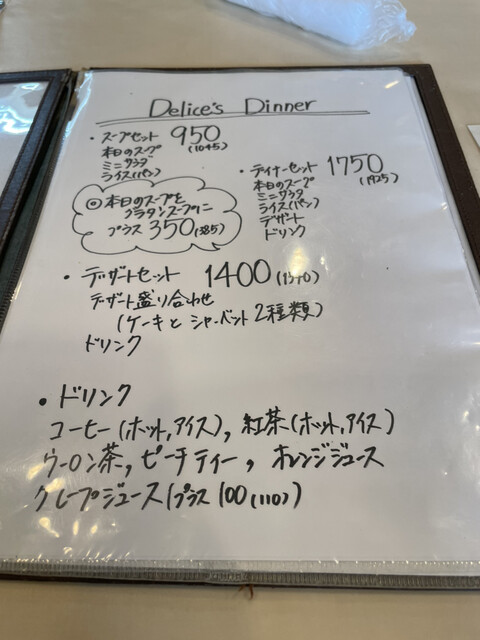 Delice's Dinner
・スープセット 950
(1045)
本日のスープ
ミニサラダ
ライス(パン)
◎本日のスープを
グラタンスープに
プラス 350(385)
・ディナーセット 1750
(1925)
本日のスープ
ミニサラダ
ライス(パン)
デザート
ドリンク
・デザートセット 1400(1540)
デザート盛り合わせ
(ケーキとシャーベット2種類)
ドリンク
・ドリンク
コーヒー(ホット,アイス), 紅茶(ホット,アイス)
ウーロン茶, ピーチティー, オレンジジュース
グレープジュース(プラス100(110))